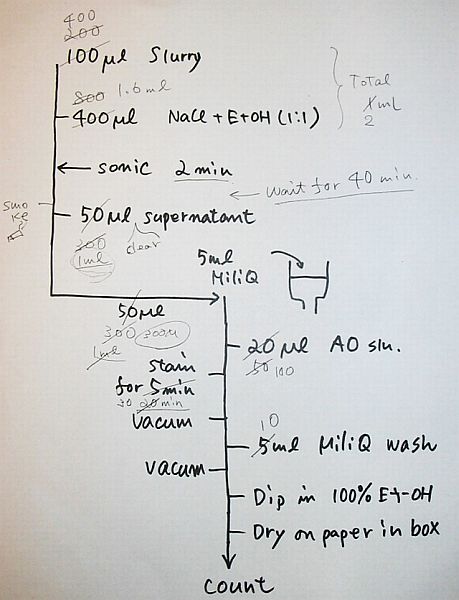 400
200
100 µl Slurry
800 1.6 ml
400 µl NaCl + EtOH (1:1)
Total
1 mL
2
sonic 2 min
wait for 40 min.
smo
ke
50 µl supernatant
200
clear
1 ml
5 ml
MiliQ
50 µl
300 300 µl
1 ml
20 µl AO sln.
50 100
stain
for 5 min
30 20 min
vacum
10
5 ml MiliQ wash
vacum
Dip in 100% Et-OH
Dry on paper in box
count